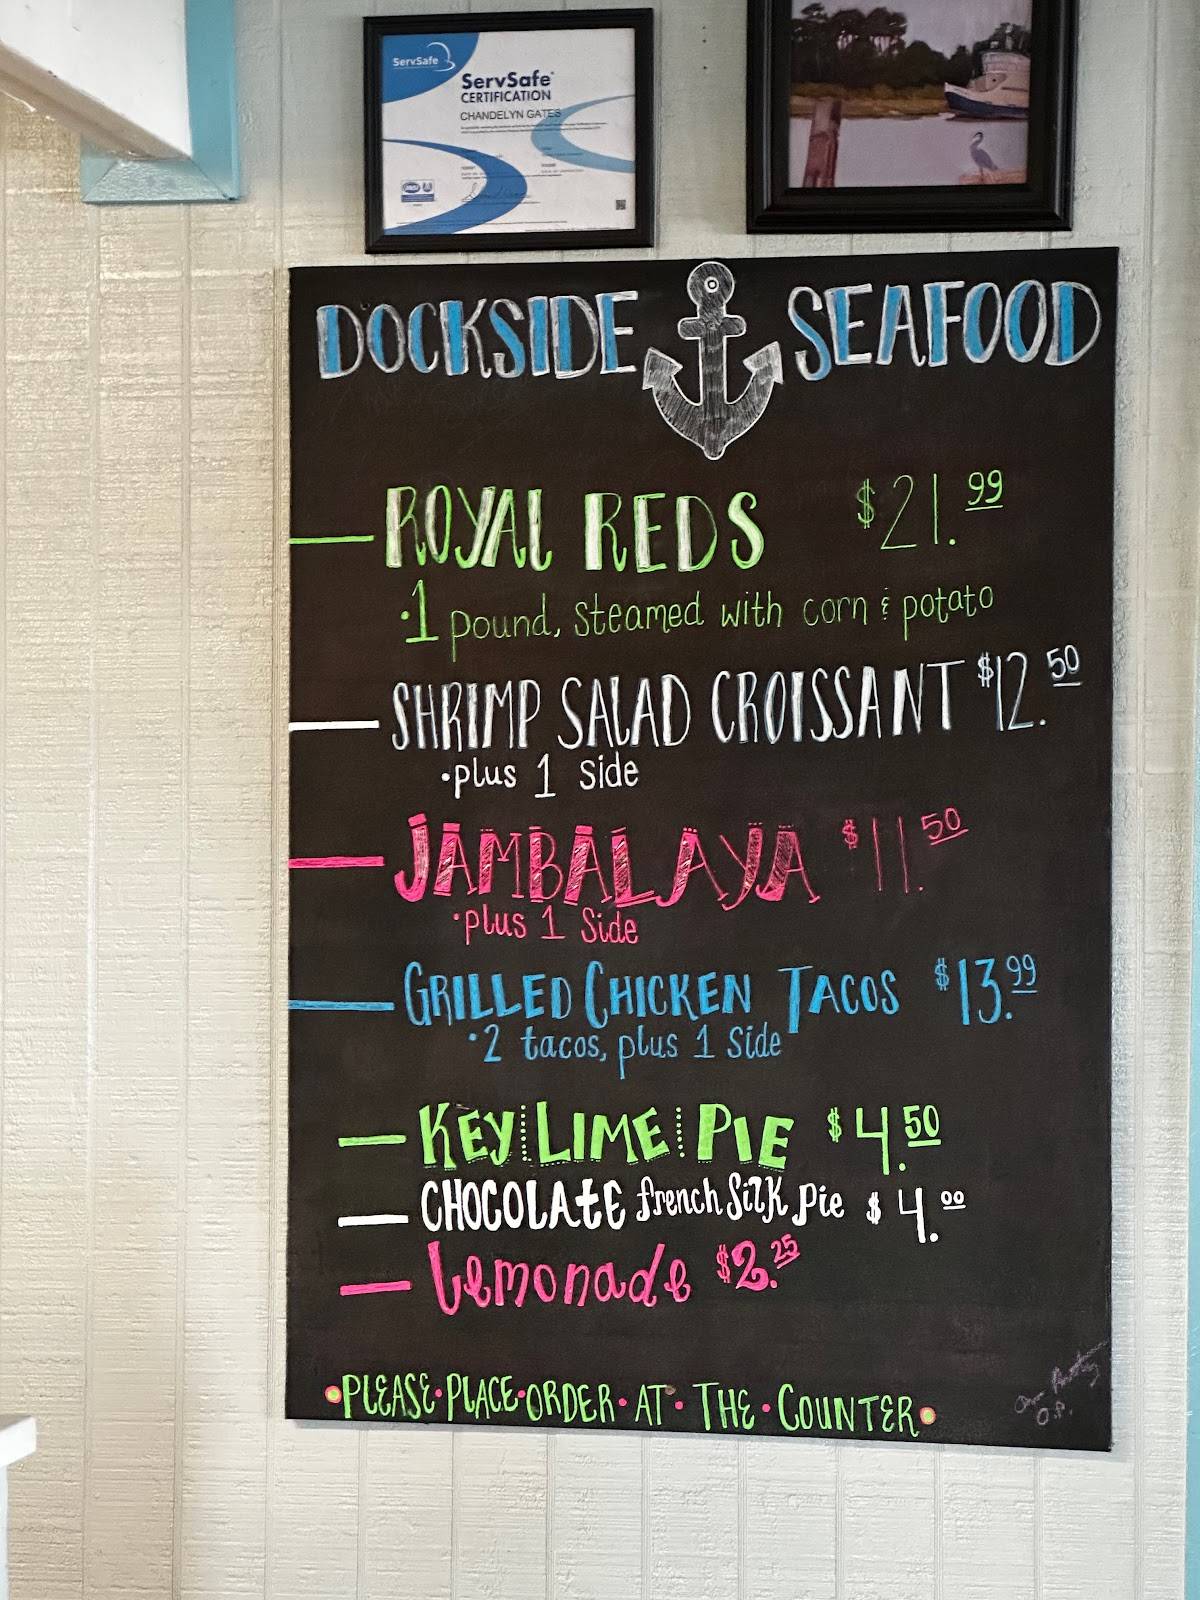 ServSafe
ServSafe®
CERTIFICATION
CHANDELYN GATES
DOCKSIDE SEAFOOD
ROYAL REDS $21.99
·1 pound, steamed with corn & potato
SHRIMP SALAD CROISSANT $12.50
·plus 1 side
JAMBALAYA $11.50
·plus 1 Side
GRILLED CHICKEN TACOS $13.99
·2 tacos, plus 1 Side
KEY LIME PIE $4.50
CHOCOLATE french Silk Pie $4.00
Lemonade $2.25
PLEASE·PLACE·ORDER·AT·THE·COUNTER
O.P.